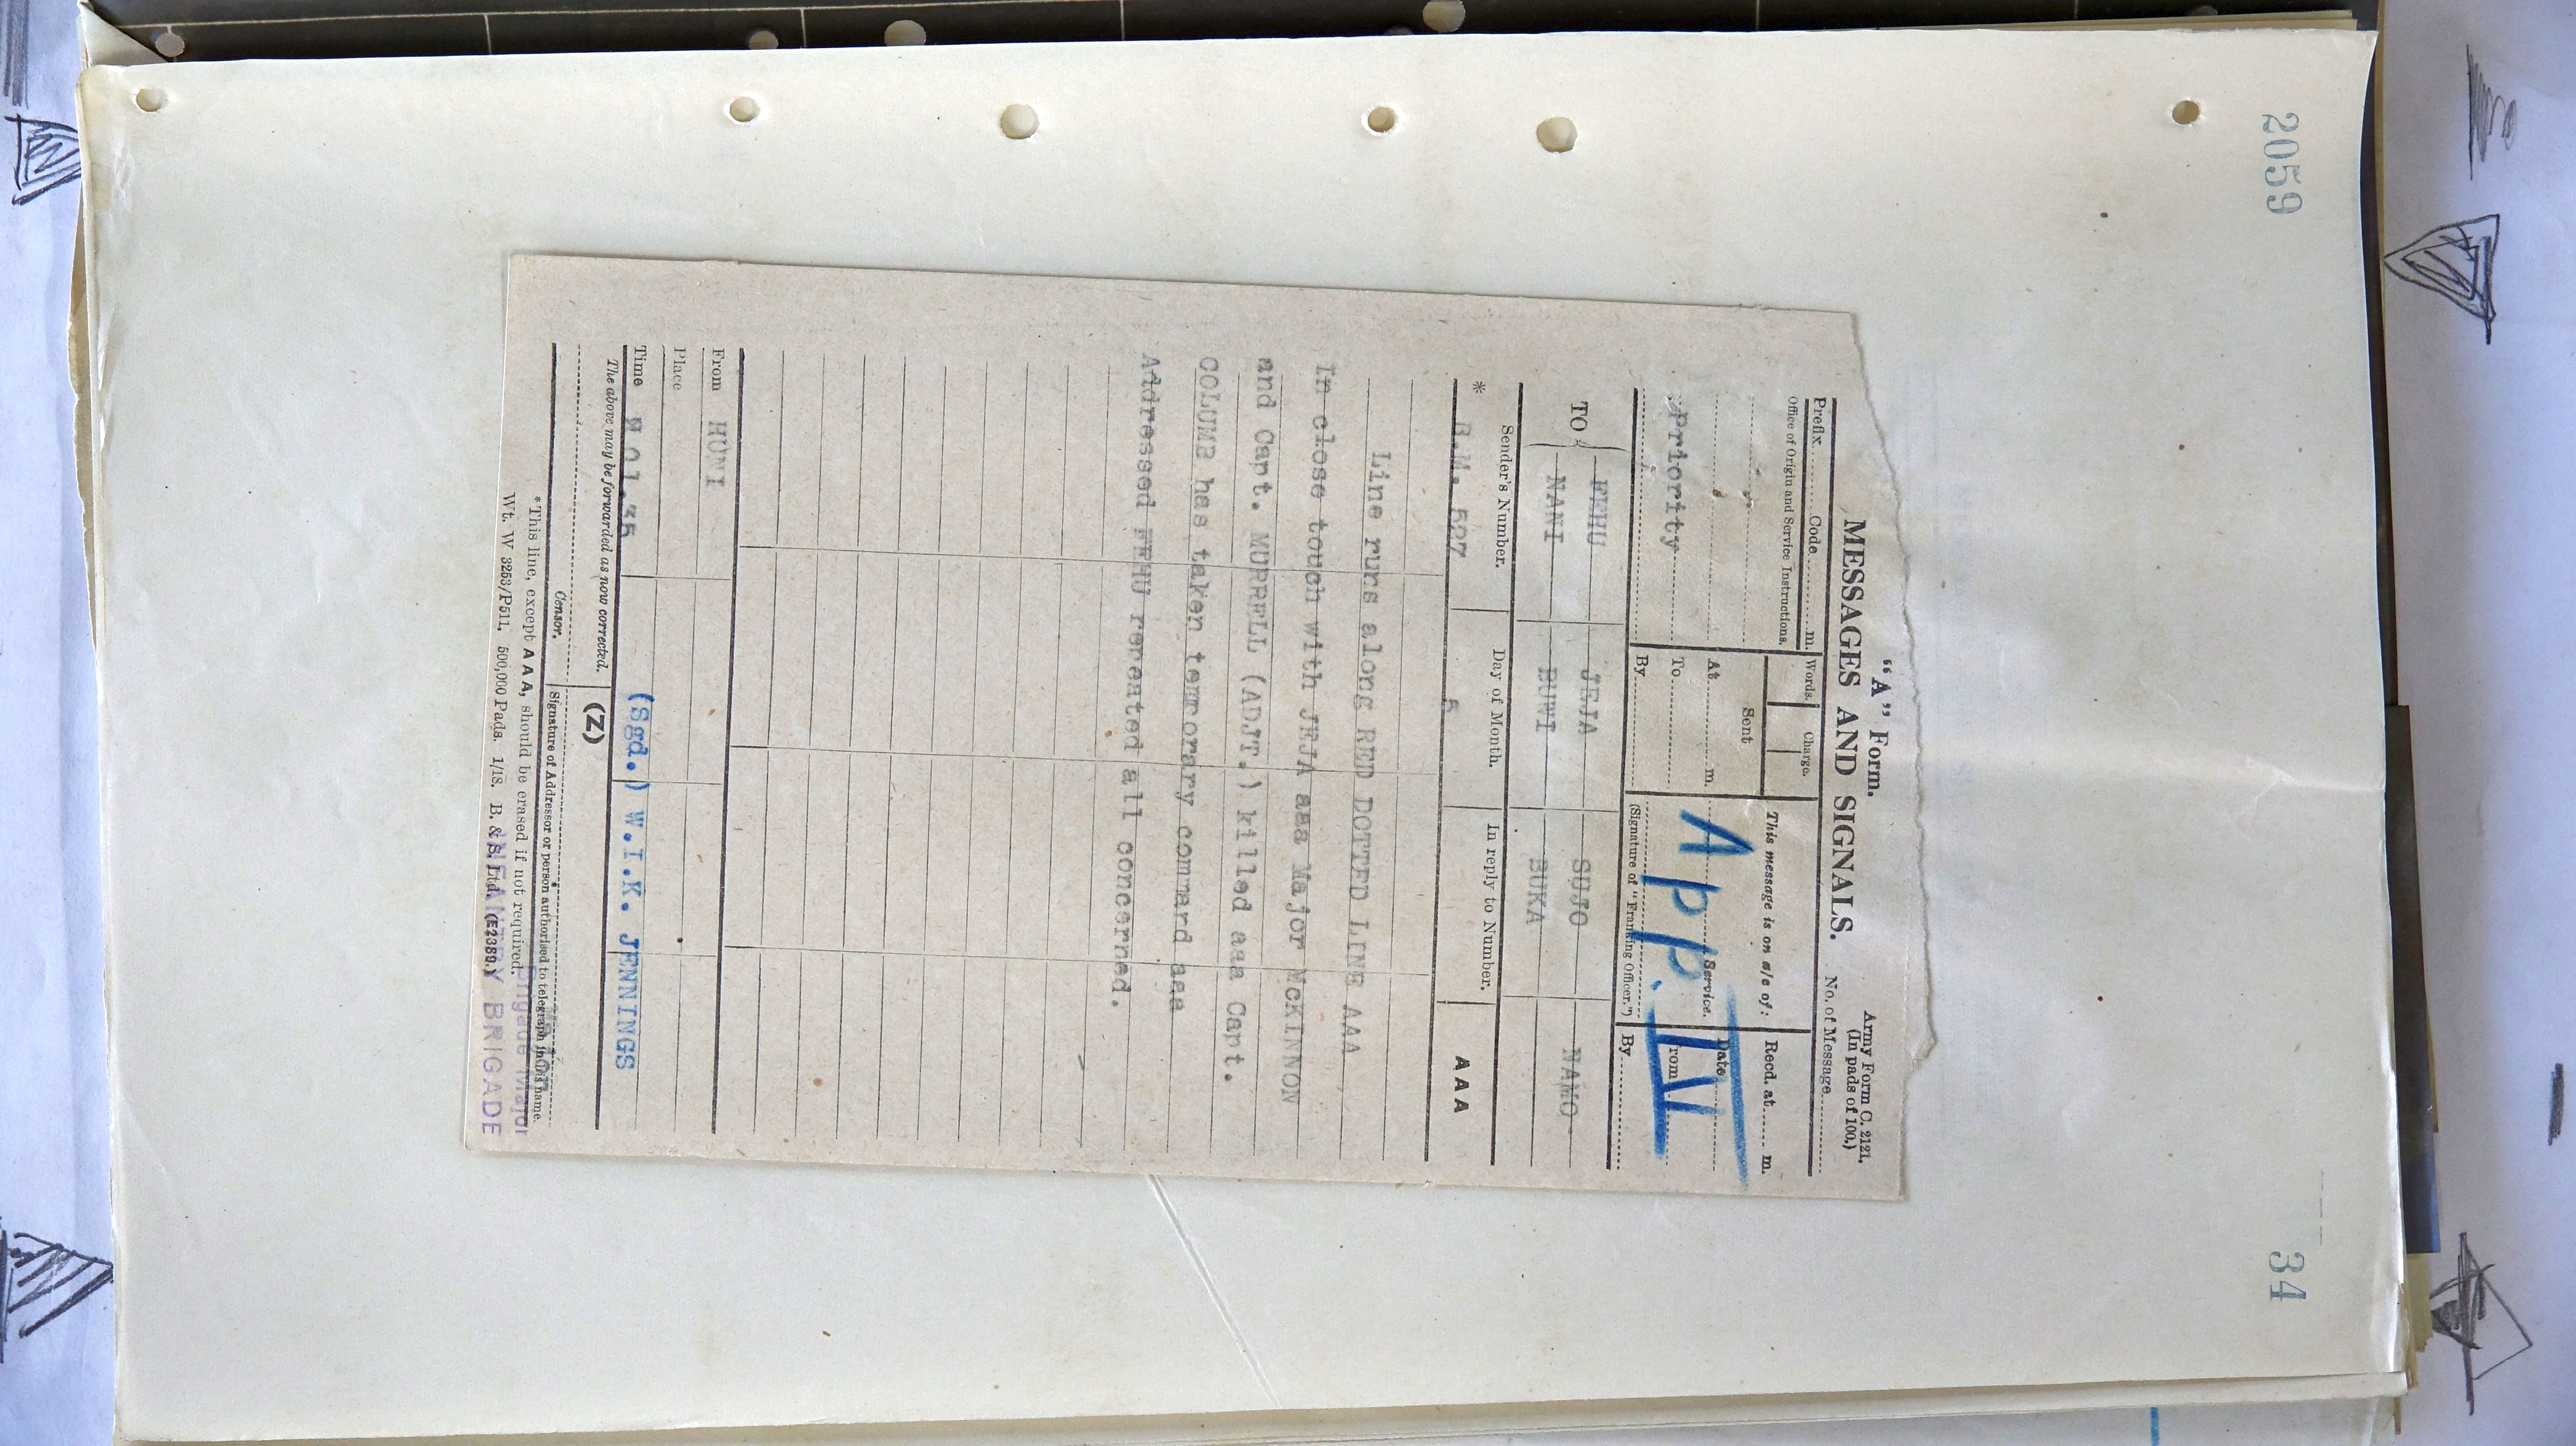 2059
34
"A" Form.
Army Form C. 2121.
(In pads of 100.)
MESSAGES AND SIGNALS.
No. of Message
Prefix Code m.
Words. Charge.
This message is on a/c of:
Recd. at m.
Office of Origin and Service Instructions.
Sent
Date
At m.
Service.
From
Priority
To
App. IV
By
(Signature of "Franking Officer.")
By
TO
FEHU JEJA SUJO NAMO
NANI BUNI BUKA
Sender's Number.
Day of Month.
In reply to Number.
* B.M. 527
5
AAA
Line runs along RED DOTTED LINE AAA
In close touch with JEJA aaa Major McKINNON
and Capt. MURRELL (ADJT.) killed aaa Capt.
COLUMB has taken temporary command aaa
Addressed FEHU repeated all concerned.
From HUNI
Place
Time
(Sgd.) W.I.K. JENNINGS
The above may be forwarded as now corrected.
(Z)
Censor.
Signature of Addressor or person authorised to telegraph in his name.
*This line, except A A A, should be erased if not required.
Brigade Major
Wt. W 3253/P511. 500,000 Pads. 1/18. B. & S. Ltd. (E2389.)
INFANTRY BRIGADE